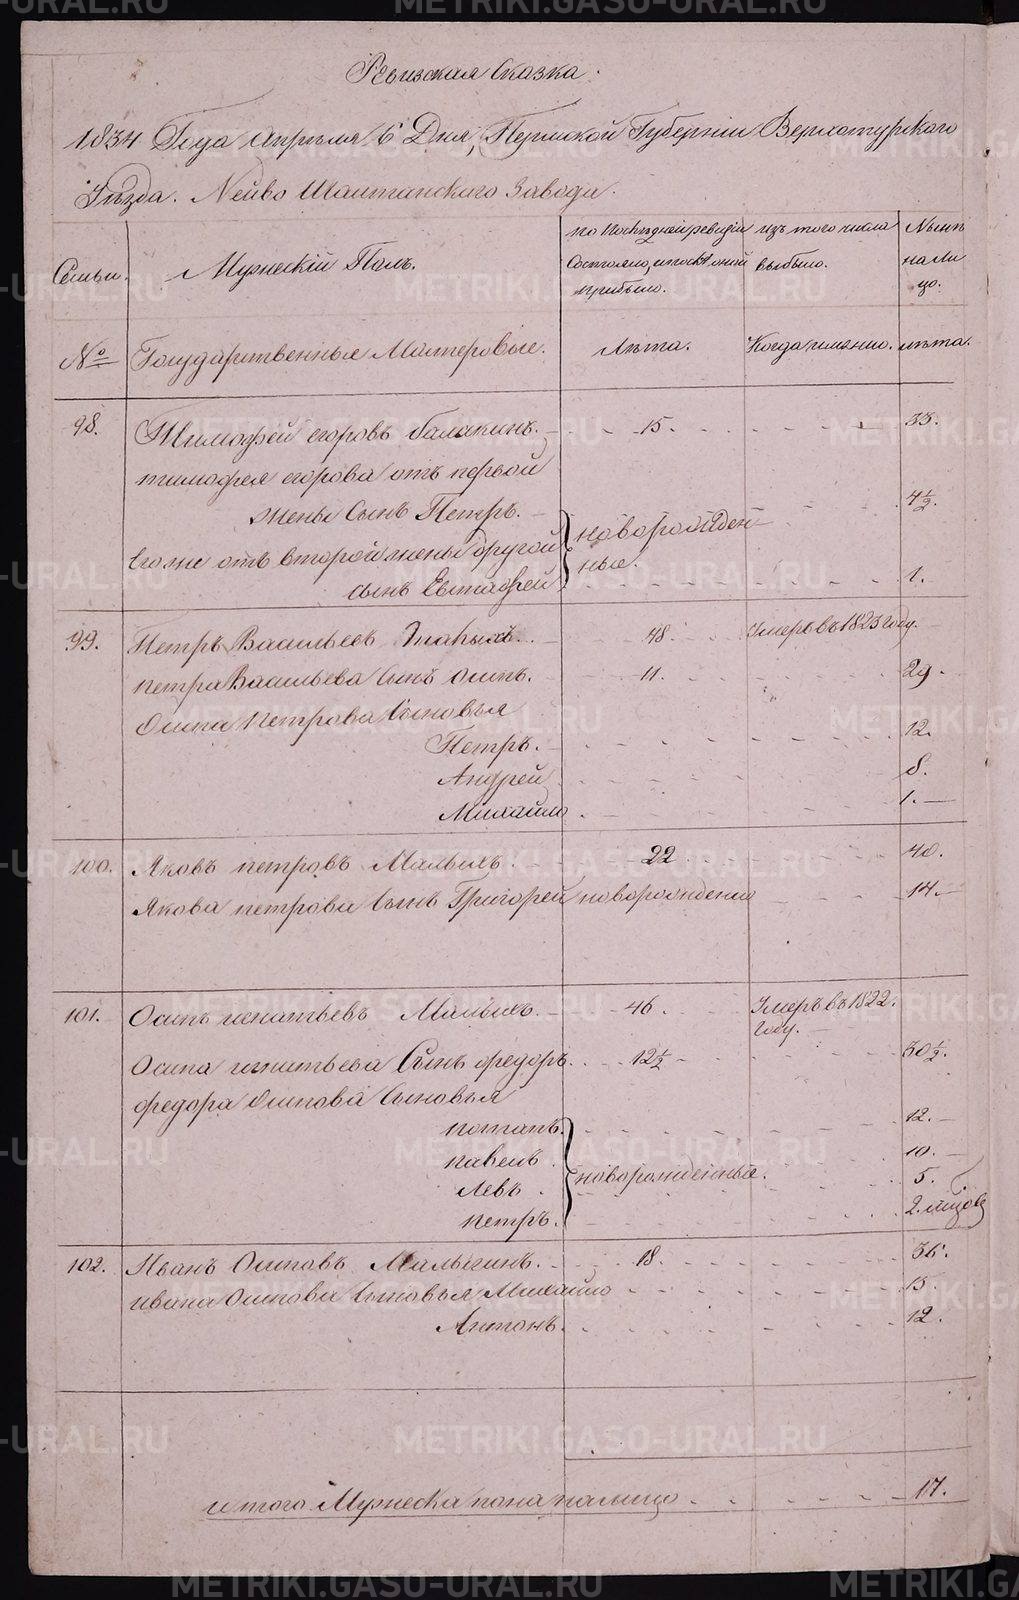 Ревизская Сказка.
1834 Года апреля 6 Дня, Пермской Губернiи Верхотурскаго
Уѣзда. Нейво Шайтанскаго Завода.
Семьи. Мужескiй Полъ. по последней ревизiи состояло, и после оной прибыло. изъ того числа выбыло. Нынѣ на лицо.
№ Государственные Мастеровые. Лѣта. Когда именно. лѣта.
98. Тимофей егоровъ балакинъ. 15. 33.
тимофея егорова отъ первой
жены Сынъ Петръ. 4½.
новорожден
его же отъ второй жены другой
ные.
сынъ Евстафей 1.
99. Петръ Васильевъ 48. Умеръ въ 1823 году.
петра Васильева Сынъ Осипъ. 11. 29.
Осипа Петрова Сыновья
Петръ. 12.
Андрей 8.
Михайло 1.
100. Яковъ петровъ Малыхъ. 22 40.
Якова петрова Сынъ Григорей новорожденно 14.
101. Осипъ игнатьевъ Малыхъ. 46. Умеръ въ 1822.
году.
Осипа игнатьева Сынъ федоръ. 12½ 30½.
федора Осипова Сыновья
потапъ. 12.
павелъ. 10.
новорожденные.
Левъ. 5.
петръ. 2.
102. Иванъ Осиповъ Малыгинъ. 18. 36.
ивана Осипова Сыновья Михайло 15.
Антонъ. 12.
итого Мужеска пола налицо 17.
METRIKI.GASO-URAL.RU